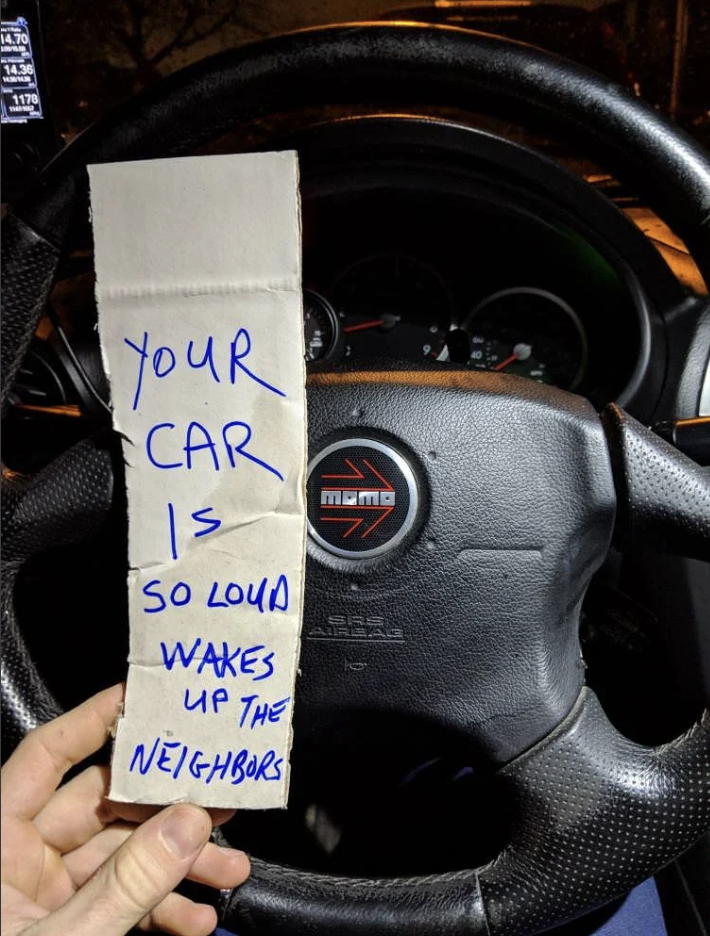 14.70
14.36
1178
YOUR
CAR
IS
SO LOUD
WAKES
UP THE
NEIGHBORS
momo
SRS
AIRBAG